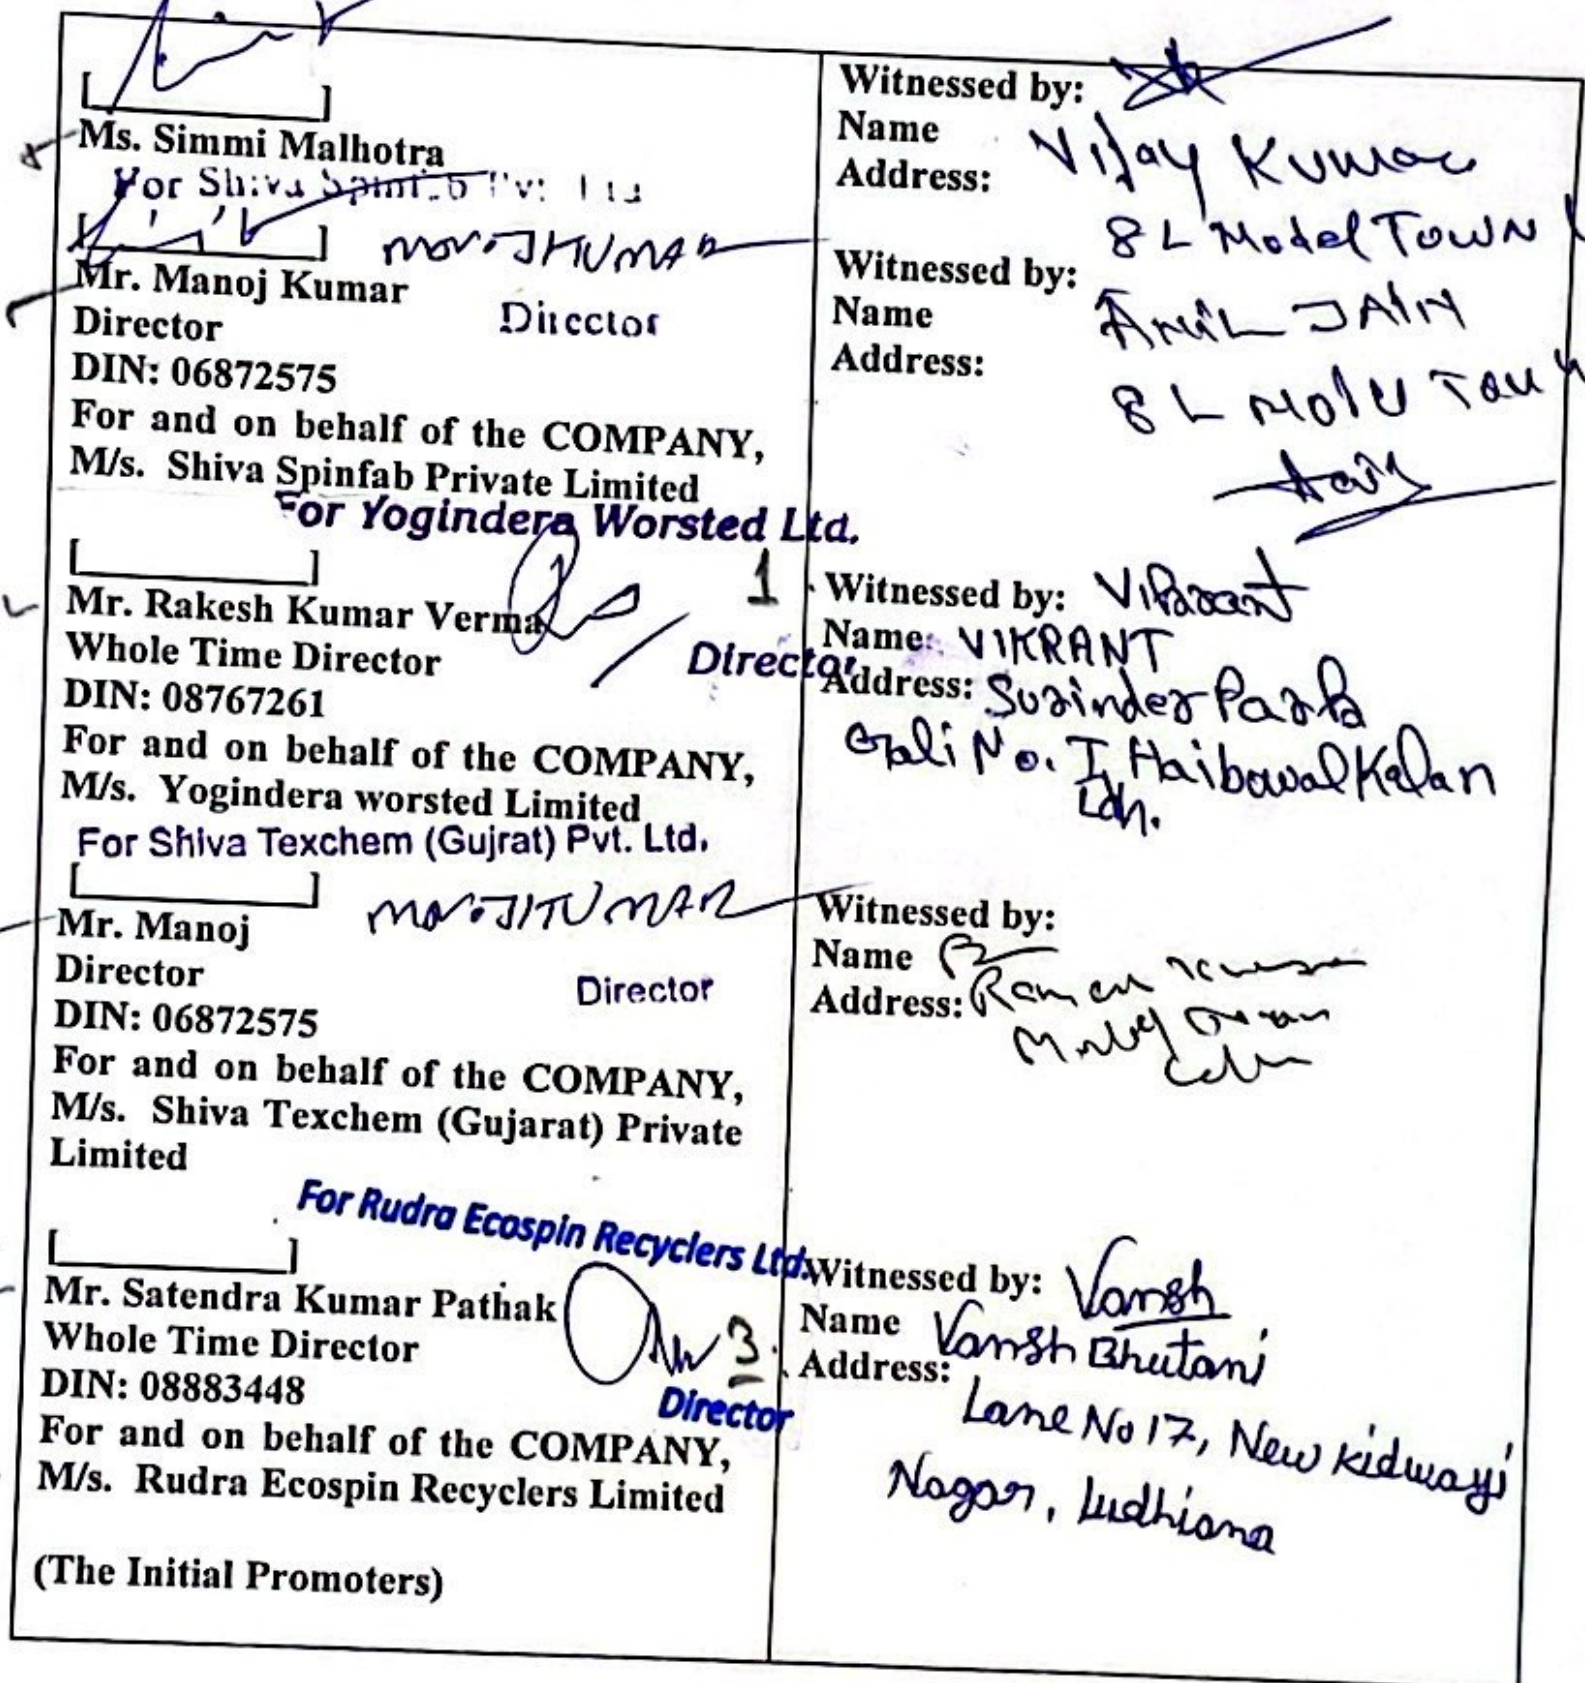 [ ]
Ms. Simmi Malhotra
For Shiva Spinfab Pvt Ltd
[ ] MANOJ KUMAR
Mr. Manoj Kumar
Director
Director
DIN: 06872575
For and on behalf of the COMPANY,
M/s. Shiva Spinfab Private Limited
For Yogindera Worsted Ltd.
[ ]
1
Mr. Rakesh Kumar Verma
Whole Time Director
Director
DIN: 08767261
For and on behalf of the COMPANY,
M/s. Yogindera worsted Limited
For Shiva Texchem (Gujrat) Pvt. Ltd.
[ ] MANOJ KUMAR
Mr. Manoj
Director
Director
DIN: 06872575
For and on behalf of the COMPANY,
M/s. Shiva Texchem (Gujarat) Private
Limited
For Rudra Ecospin Recyclers Ltd.
[ ]
Mr. Satendra Kumar Pathak
3.
Whole Time Director
DIN: 08883448
Director
For and on behalf of the COMPANY,
M/s. Rudra Ecospin Recyclers Limited
(The Initial Promoters)
Witnessed by:
Name Vijay Kumar
Address:
8 L Model TOWN
Witnessed by:
Name ANIL JAIN
Address:
8 L
Witnessed by: Vikrant
Name: VIKRANT
Address: Surinder Park
Gali No. I, Haibowal Kalan
Ldh.
Witnessed by:
Name
Address: Raman
Witnessed by: Vansh
Name Vansh Bhutani
Address:
Lane No 17, New kidwayi
Nagar, Ludhiana